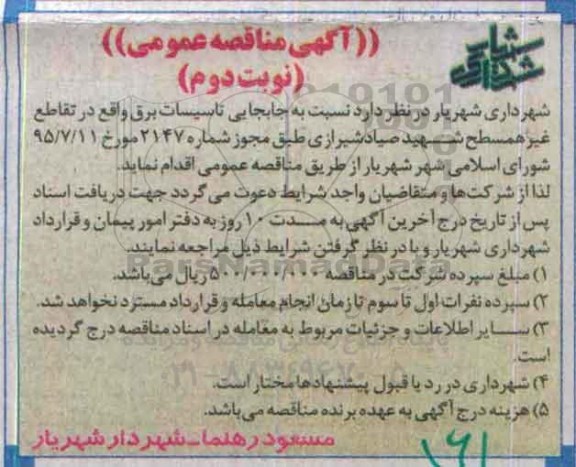 ((آگهی مناقصه عمومی))
(نوبت دوم)
شهرداری شهریار
شهرداری شهریار در نظر دارد نسبت به جابجایی تاسیسات برق واقع در تقاطع
غیر همسطح شهید صیاد شیرازی طبق مجوز شماره ۲۱۴۷ مورخ ۹۵/۷/۱۱
شورای اسلامی شهر شهریار از طریق مناقصه عمومی اقدام نماید.
لذا از شرکت‌ها و متقاضیان واجد شرایط دعوت می گردد جهت دریافت اسناد
پس از تاریخ درج آخرین آگهی به مدت ۱۰ روز به دفتر امور پیمان و قرارداد
شهرداری شهریار و با در نظر گرفتن شرایط ذیل مراجعه نمایند.
۱) مبلغ سپرده شرکت در مناقصه ۵۰۰/۰۰۰/۰۰۰ ریال می‌باشد.
۲) سپرده نفرات اول تا سوم تا زمان انجام معامله و قرارداد مسترد نخواهد شد.
۳) سایر اطلاعات و جزئیات مربوط به معامله در اسناد مناقصه درج گردیده
است.
۴) شهرداری در رد یا قبول پیشنهادها مختار است.
۵) هزینه درج آگهی به عهده برنده مناقصه می‌باشد.
مسعود رهنما-شهردار شهریار
ParsNamadData